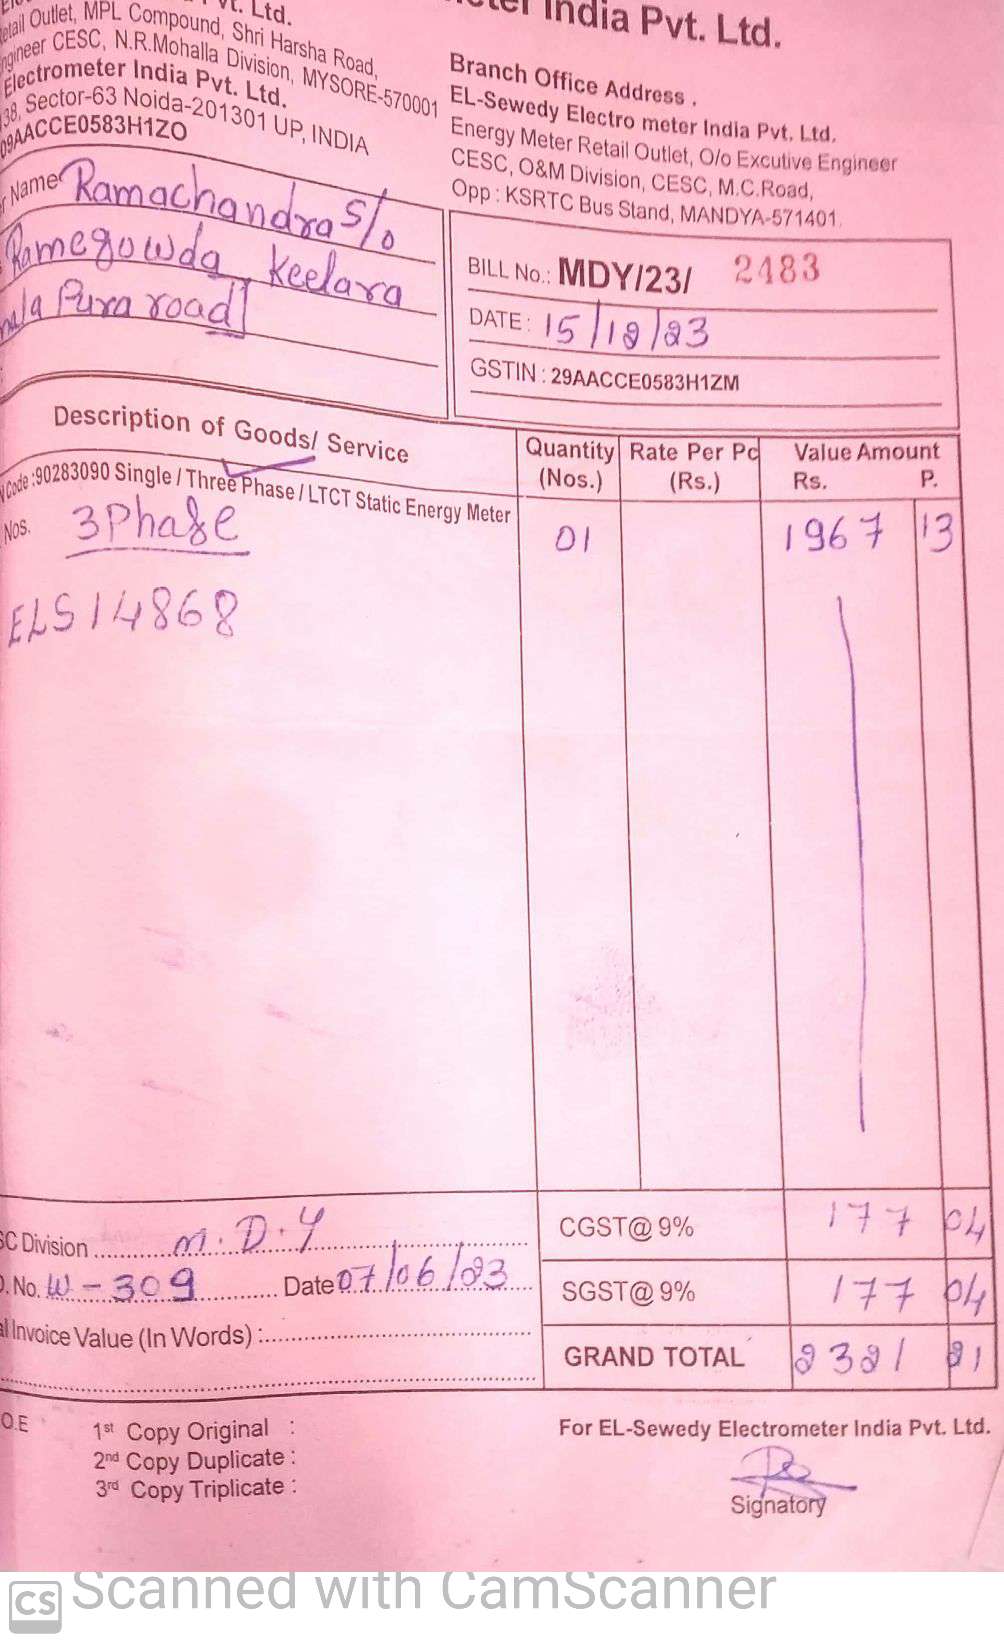 India Pvt. Ltd.
Pvt. Ltd.
Outlet, MPL Compound, Shri Harsha Road,
CESC, N.R.Mohalla Division, MYSORE-570001
Electrometer India Pvt. Ltd.
Sector-63 Noida-201301 UP, INDIA
09AACCE0583H1ZO
Branch Office Address .
EL-Sewedy Electro meter India Pvt. Ltd.
Energy Meter Retail Outlet, O/o Excutive Engineer
CESC, O&M Division, CESC, M.C.Road,
Opp : KSRTC Bus Stand, MANDYA-571401.
Name Ramachandra S/o
Ramegowda Keelara
Pura road
BILL No.: MDY/23/ 2483
DATE: 15/12/23
GSTIN : 29AACCE0583H1ZM
Description of Goods/ Service Quantity (Nos.) Rate Per Pc (Rs.) Value Amount Rs. P.
Code :90283090 Single / Three Phase / LTCT Static Energy Meter
Nos. 3 Phase 01 1967 13
ELS14868
Division M.D.Y CGST@ 9% 177 04
No. W-309 Date 07/06/23 SGST@ 9% 177 04
Invoice Value (In Words) :
GRAND TOTAL 2321 21
O.E
1st Copy Original :
2nd Copy Duplicate :
3rd Copy Triplicate :
For EL-Sewedy Electrometer India Pvt. Ltd.
Signatory
CS Scanned with CamScanner